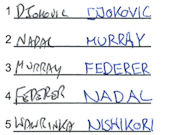 1 DJOKOVIC DJOKOVIC
2 NADAL MURRAY
3 MURRAY FEDERER
4 FEDERER NADAL
5 WAWRINKA NISHIKORI